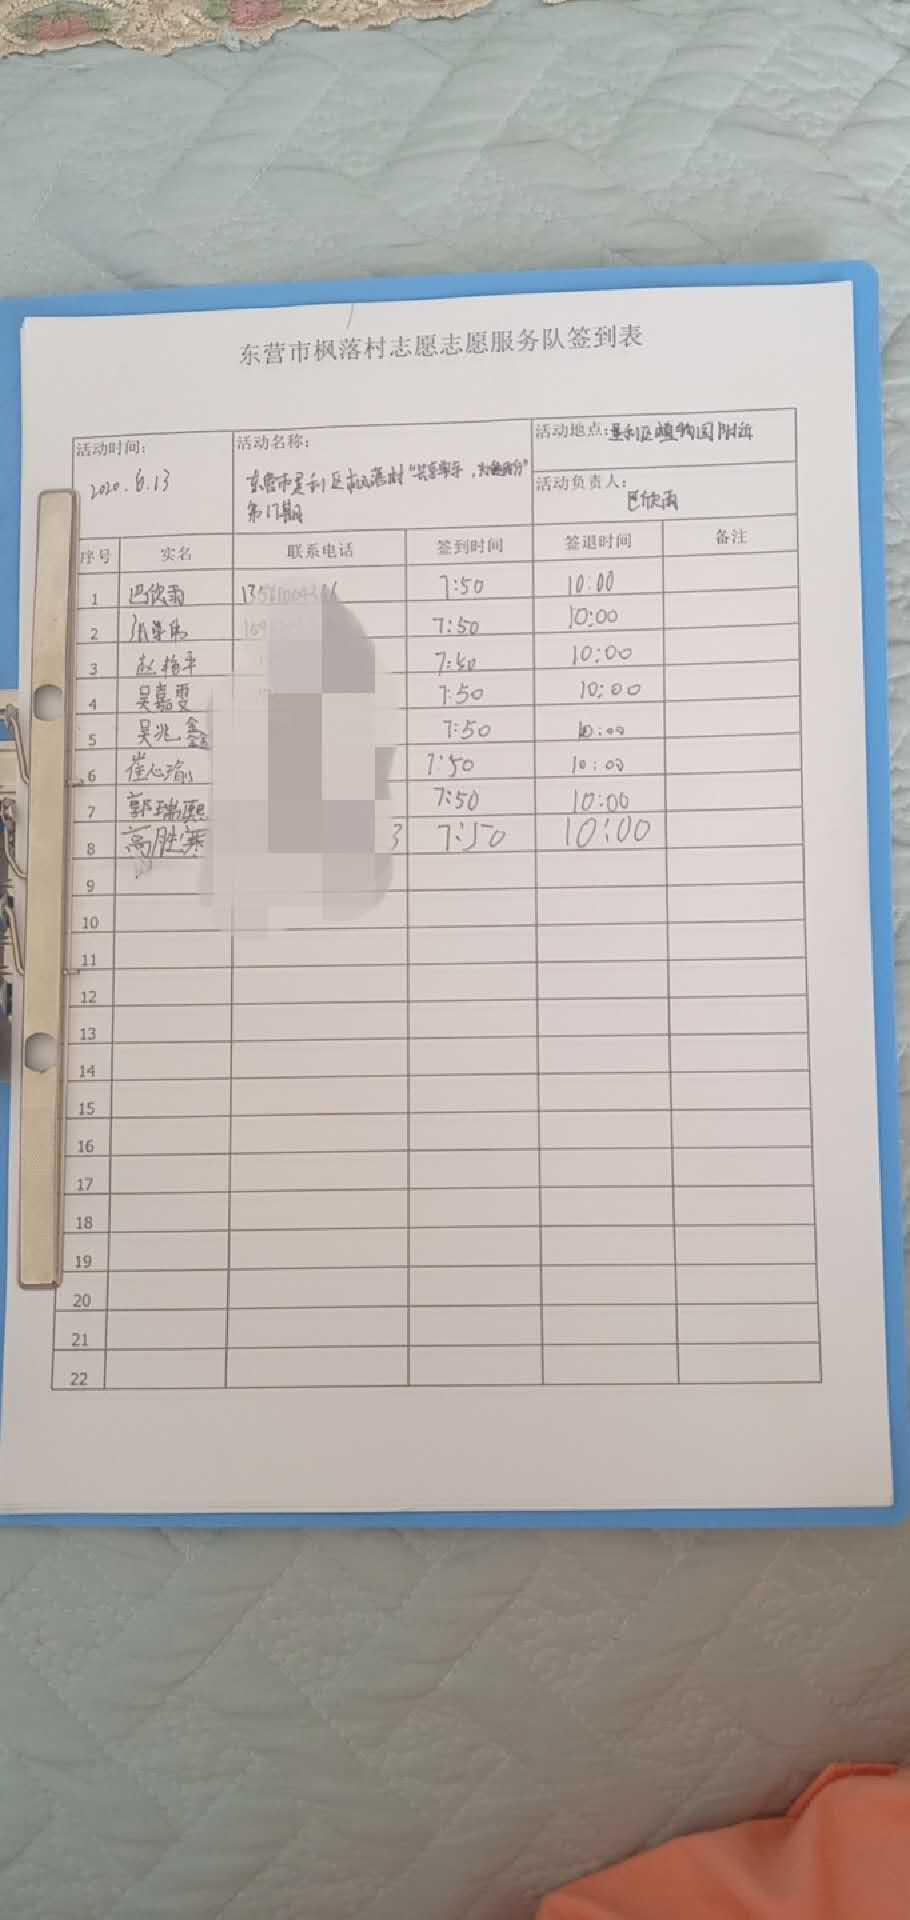 东营市枫落村志愿志愿服务队签到表
活动时间: 2020.6.13
活动名称: 东营市垦利区枫落村"共享单车,
第17期
活动地点:垦利区植物园附近
活动负责人: 巴欣雨
序号 实名 联系电话 签到时间 签退时间 备注
1 巴欣雨 7:50 10:00
2 7:50 10:00
3 赵 7:50 10:00
4 吴嘉雯 7:50 10:00
5 吴兆鑫 7:50 10:00
6 崔心瑜 7:50 10:00
7 郭瑞熙 7:50 10:00
8 高胜寒 3 7:50 10:00
9
10
11
12
13
14
15
16
17
18
19
20
21
22